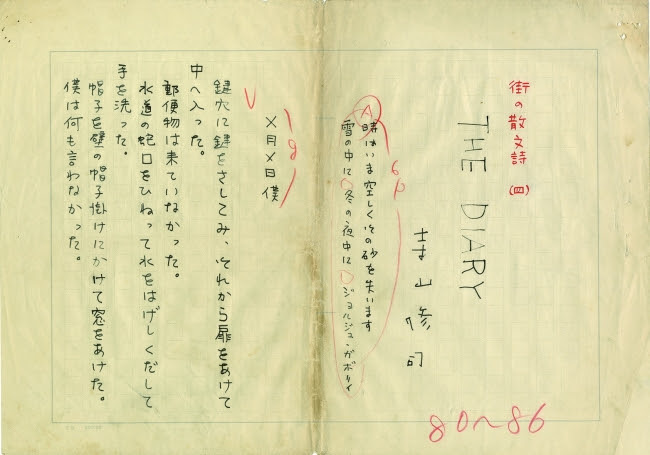 街の散文詩（四）
THE DIARY
寺山修司
A
6P
時はいま空しくその砂を失います
雪の中に 冬の夜中に ジョルジュ・ガボリイ
18
×月×日 僕
鍵穴に鍵をさしてみ、それから扉をあけて
中へ入った。
郵便物は来ていなかった。
水道の蛇口をひねって水をはげしくだして
手を洗った。
帽子を壁の帽子掛けにかけて窓をあけた。
僕は何も言わなかった。
80〜86